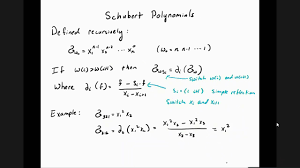 Schubert Polynomials
Defined recursively:
𝔖_{w₀} = x₁^{n-1} x₂^{n-2} ⋯ (w₀ = n n-1 ⋯ 1)
If w(i) > w(i+1) then 𝔖_{ws_i} = ∂_i(𝔖_w)
Switch w(i) and w(i+1)
Where ∂_i(f) = (f - s_i f)/(x_i - x_{i+1})
s_i = (i i+1) simple reflection
Switch x_i and x_{i+1}
Example: 𝔖_{321} = x₁² x₂
𝔖_{312} = ∂₂(x₁² x₂) = (x₁² x₂ - x₁² x₃)/(x₂ - x₃) = x₁²